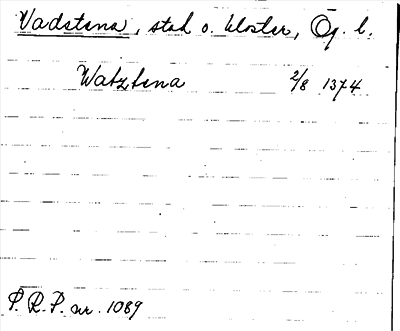 Vadstena, stad o. kloster, Ög. l.
Watzstena 2/8 1374
P. R. P. nr. 1089